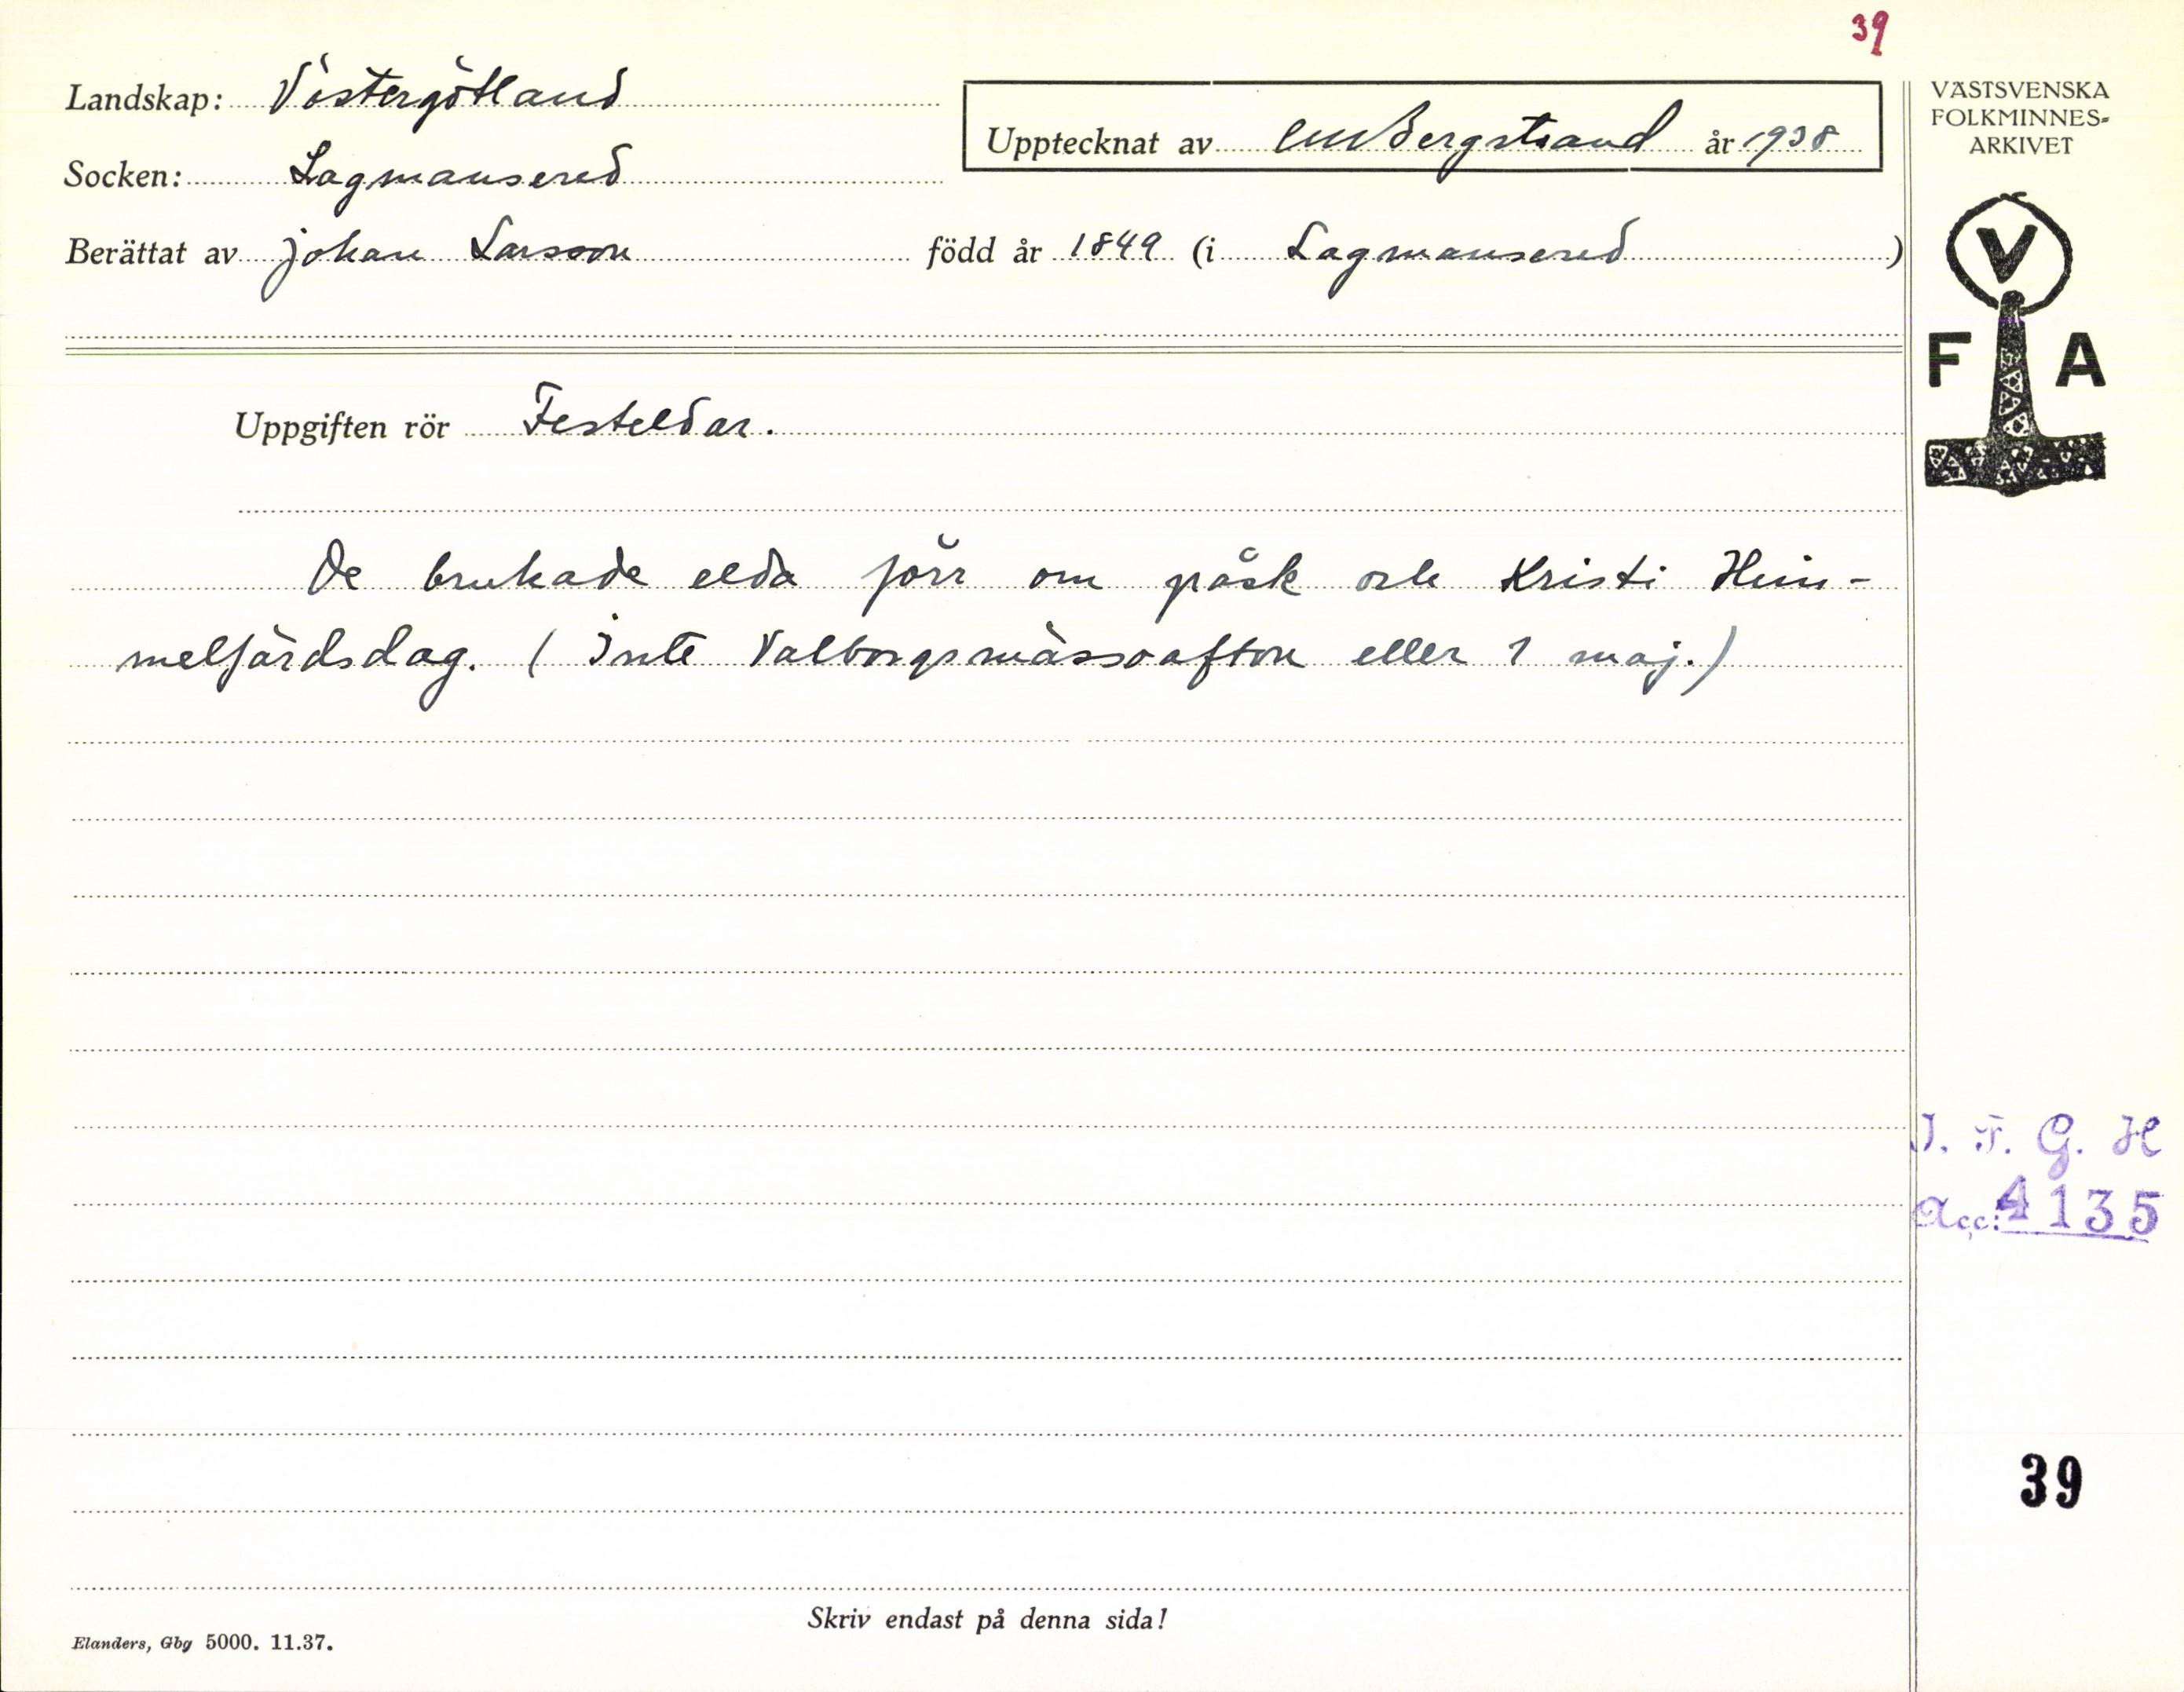 39
Landskap: Västergötland
Socken: Lagmansered
Upptecknat av CM Bergstrand år 1938
Berättat av Johan Larsson född år 1849 (i Lagmansered)
VÄSTSVENSKA
FOLKMINNES-
ARKIVET
V
F A
Uppgiften rör Festeldar.
De brukade elda förr om påsk och Kristi Him-
melfärdsdag. (Inte Valborgsmässoafton eller 1 maj.)
I. F. G. H
Acc: 4135
39
Skriv endast på denna sida!
Elanders, Gbg 5000. 11.37.